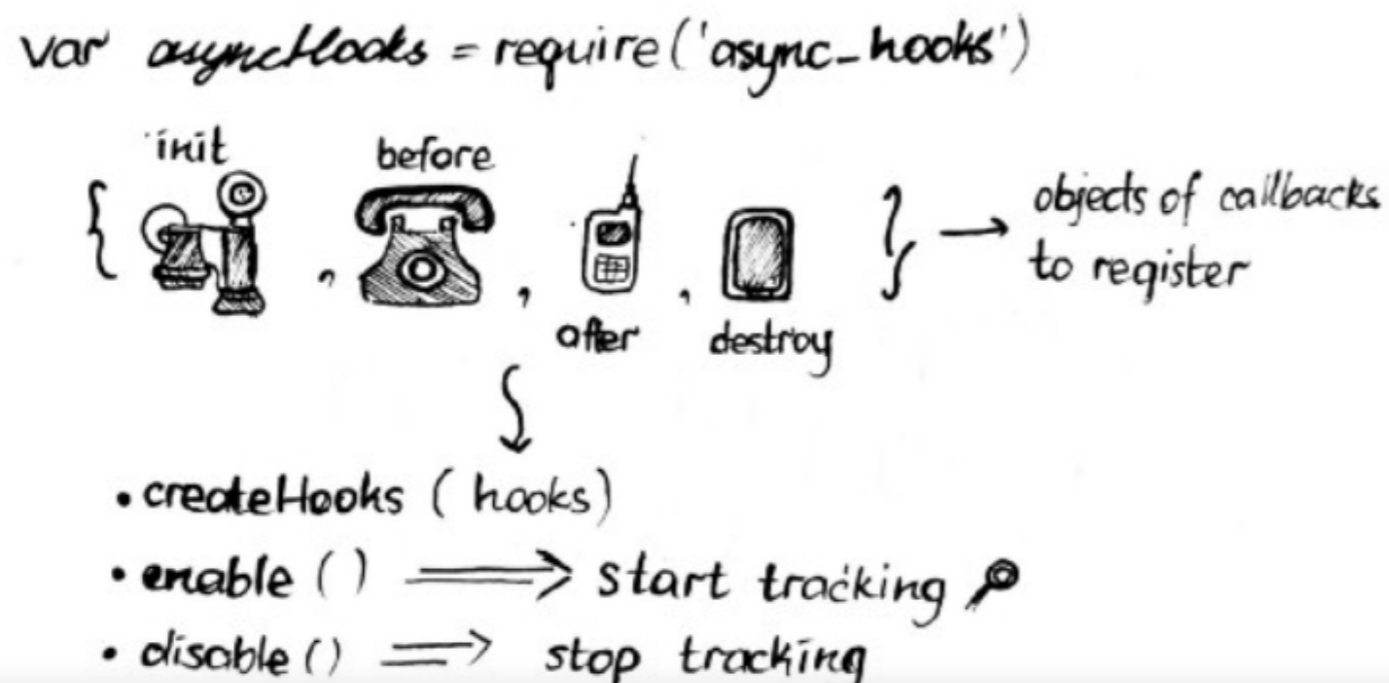 var asyncHooks = require('async_hooks')
init before
{ , , , } → objects of callbacks
to register
after destroy
• createHooks (hooks)
• enable () ⟹ start tracking
• disable () ⟹ stop tracking